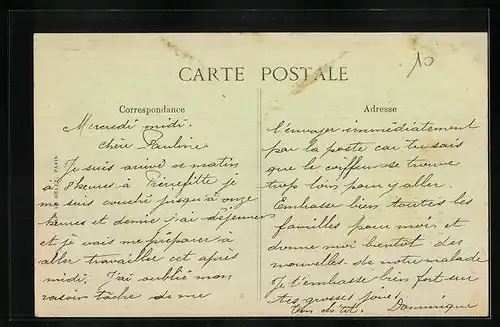 10
CARTE POSTALE
Correspondance
Mercredi midi.
chère Pauline
Je suis arrivé ce matin
à 8 heures à Pierrefitte je
me suis couché jusqu'à onze
heures et demie j'ai déjeuner
et je vais me préparer à
aller travailler cet après
midi. J'ai oublié mon
rasoir tâche de me
Adresse
l'envoyer immédiatement
par la poste car tu sais
que le coiffeur se trouve
trop loin pour y aller.
Embrasse bien toutes les
familles pour moi et
donne moi bientôt des
nouvelles de notre malade
Je t'embasse bien fort sur
tes grosses joues.
Ton Dominique